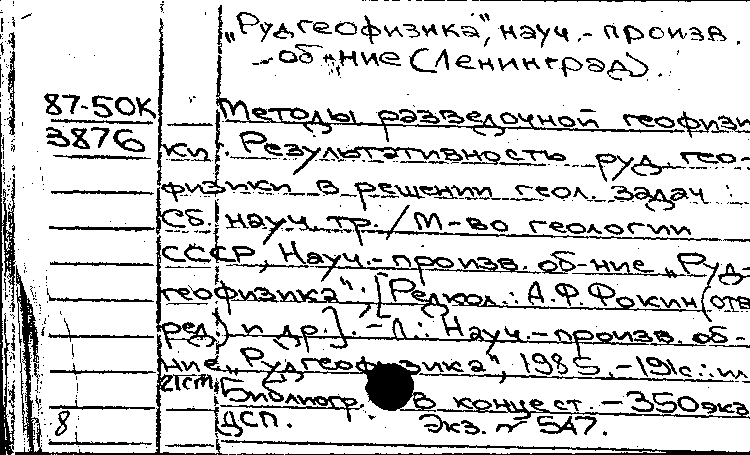 „Рудгеофизика", науч.-произв.
-об-ние (Ленинград).
87-50К Методы разведочной геофизи-
3876 ки: Результативность руд. гео-
физики в решении геол. задач :
Сб. науч. тр. / М-во геологии
СССР, Науч.-произв. об-ние „Руд-
геофизика"; [Редкол.: А.Ф.Фокин (отв.
ред.) и др.]. - Л.: Науч.-произв. об-
ние „Рудгеофизика", 1985. - 191с.: ил
21cm Библиогр. в конце ст. - 350экз
8 ДСП. Экз. № 547.